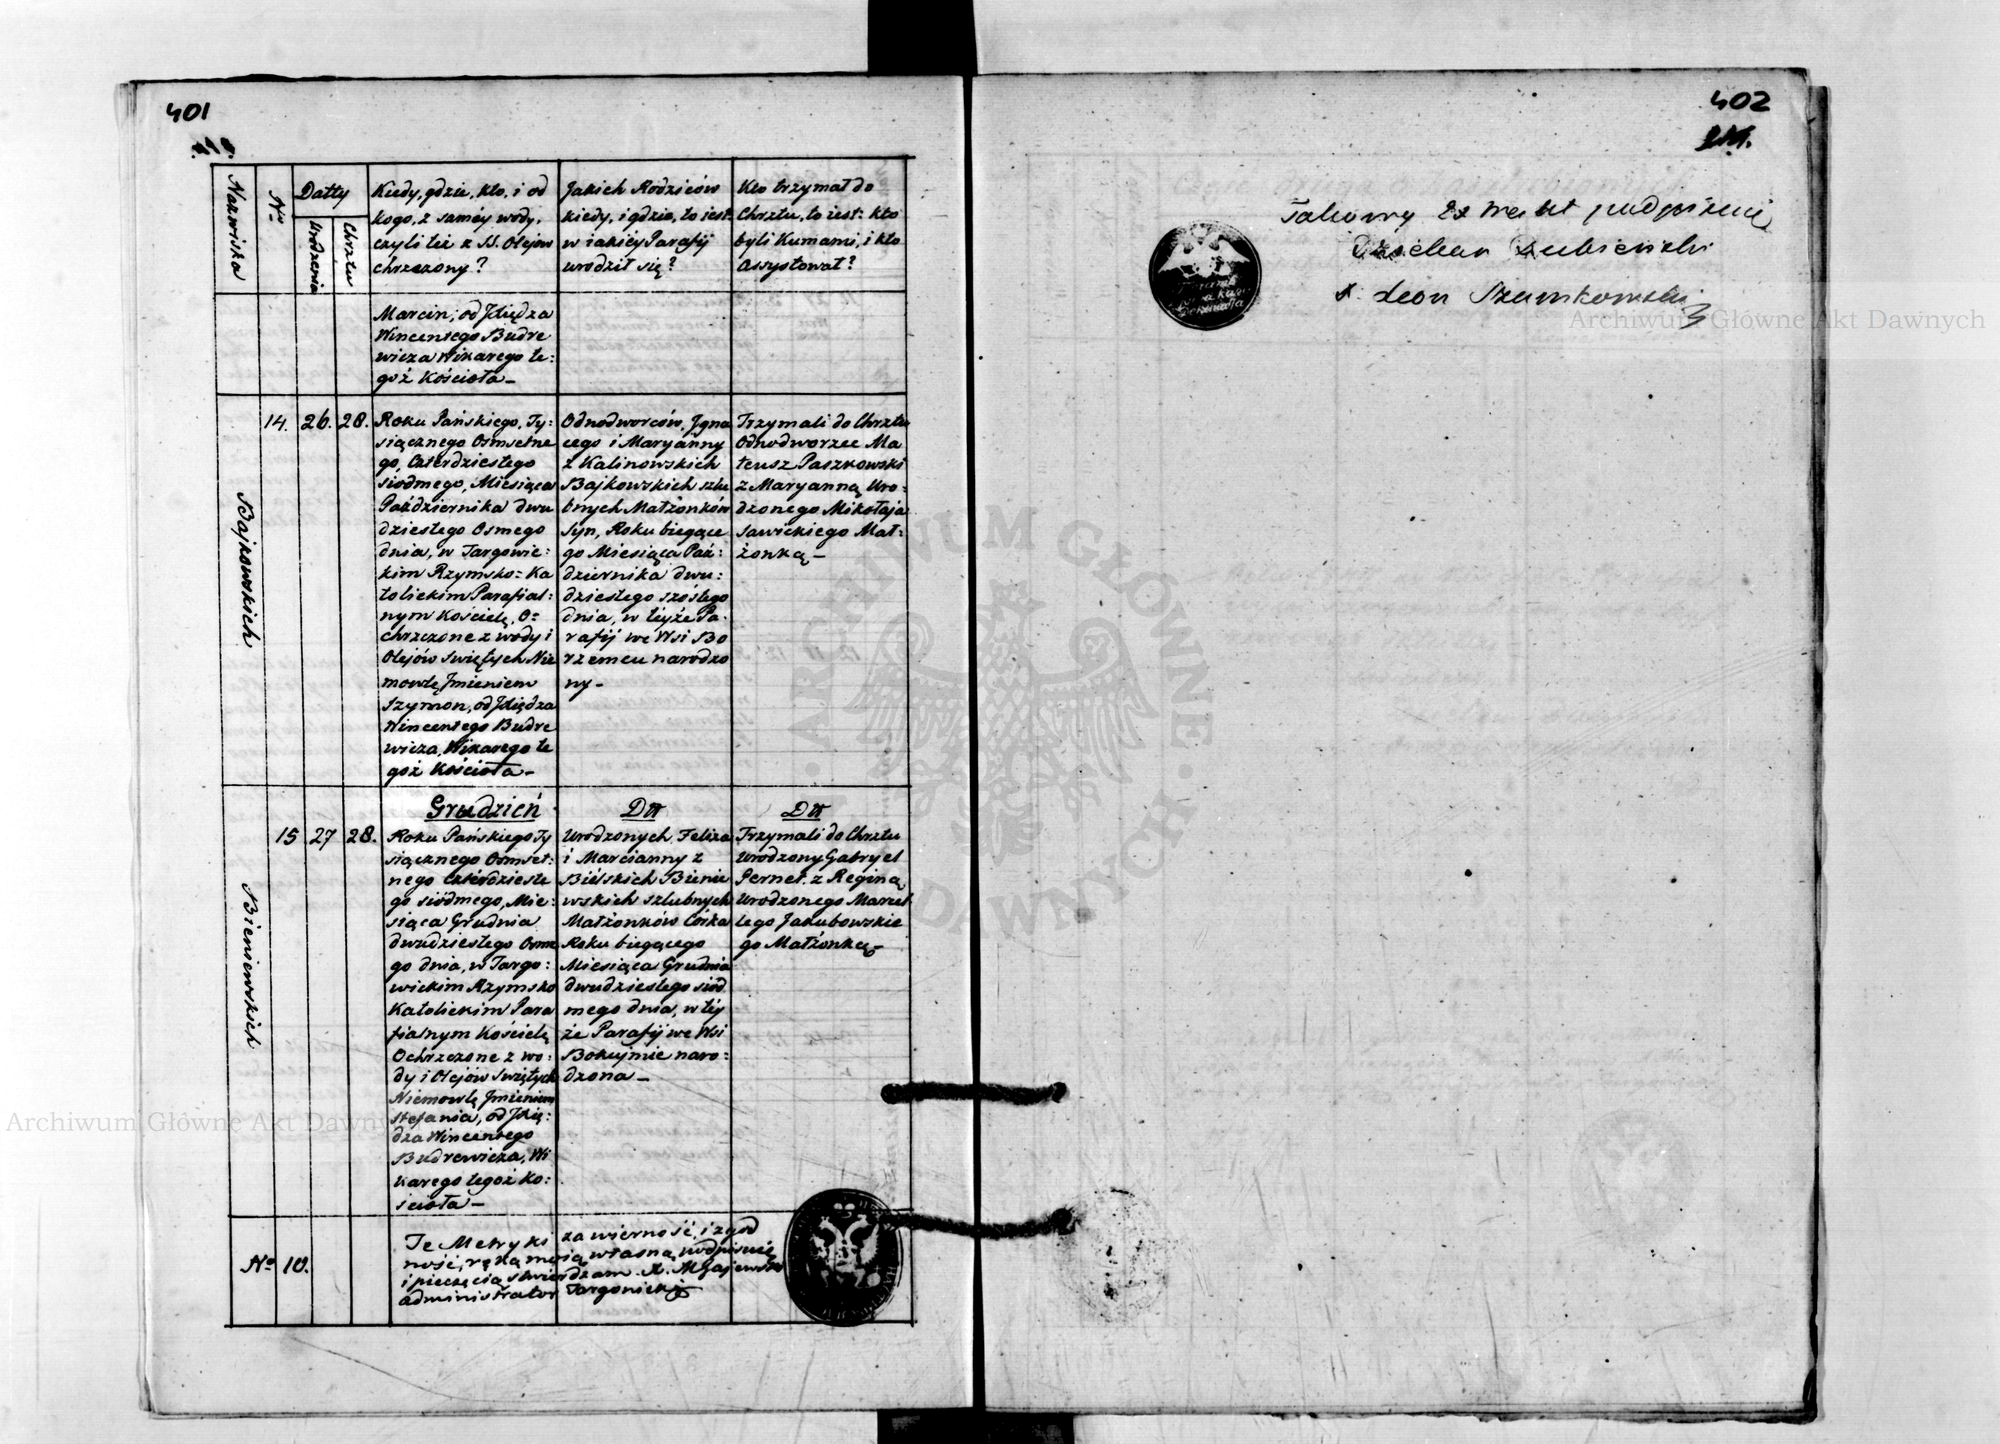 401
Nazwiska
No
Datty
Urodzenia
Chrztu
Kiedy, gdzie, kto, i od
kogo, z saméy wody,
czyli też z SS. Olejów
chrzczony?
Jakich Rodziców
kiedy, i gdzie, to iest:
w iakiéy Parafij
urodził się?
Kto trzymał do
Chrztu, to iest: kto
byli Kumami, i kto
Assystował?
Marcin, od Xiędza
Wincentego Budre
wicza Wikarego te:
goż Kościoła —
Bajkowskich
14. 26. 28.
Roku Pańskiego, Ty:
siącznego Osmsetne
go, Czterdziestego
siódmego, Miesiąca
Października dwu
dziestego Osmego
dnia, w Targowic:
kim Rzymsko= Ka
tolickim Parafial=
nym Kościelę, O=
chrzczone z wody i
Olejów Swiętych Nie
mowlę Jmieniem
Szymon, od Xiędza
Wincentego Budre
wicza, Wikarego te
goż Kościoła —
Odnodworców, Jgna
cego i Maryanny
z Kalinowskich
Bajkowskich szlu
bnych Małżonków
Syn, Roku biegące
go Miesiąca Paź:
dziernika dwu:
dziestego szóstego
dnia, w téyże Pa:
rafij we Wsi Bo
rzemcu narodzo
ny —
Trzymali do Chrztu
Odnodworzec Ma
teusz Paszkowski
z Maryanną Uro:
dzonego Mikołaja
Sawickiego Mał:
żonką —
Bieniewskich
Grudzień
15 27 28.
Roku Pańskiego Ty
siącznego Osmset:
nego Czterdzieste
go siódmego, Mie:
siąca Grudnia
dwudziestego Osme
go dnia, w Targo:
wickim Rzymsko
Katolickim Para
fialnym Kościelę
Ochrzczone z wo:
dy i Olejów Swiętych
Niemowlę Jmieniem
Stefania, od Xię:
dza Wincentego
Budrewicza, Wi
karego tegoż Ko:
ścioła —
Dtt
Urodzonych Felixa
i Marcianny z
Bielskich Bienie
wskich szlubnych
Małżonków Córka
Roku biegącego
Miesiąca Grudnia
dwudziestego siód
mego dnia, w téy
że Parafij we Wsi
Bokujmie naro:
dzona —
Dtt
Trzymali do Chrztu
Urodzony Gabryel
Pernet. z Reginą
Urodzonego Marcel
lego Jakubowskie
go Małżonką —
No 10.
Te Metryki za wierność, i zgod
ność, ręką moią własną podpisuię
i pieczęcią stwierdzam. X. M Gajewski
administrator Targowicki
402
Takowy Extrakt podpisuię
Dziekan Dubieński
X. Leon Szumkowski
Archiwum Główne Akt Dawnych
Archiwum Główne Akt Dawnych
ARCHIWUM GŁÓWNE
AKT DAWNYCH